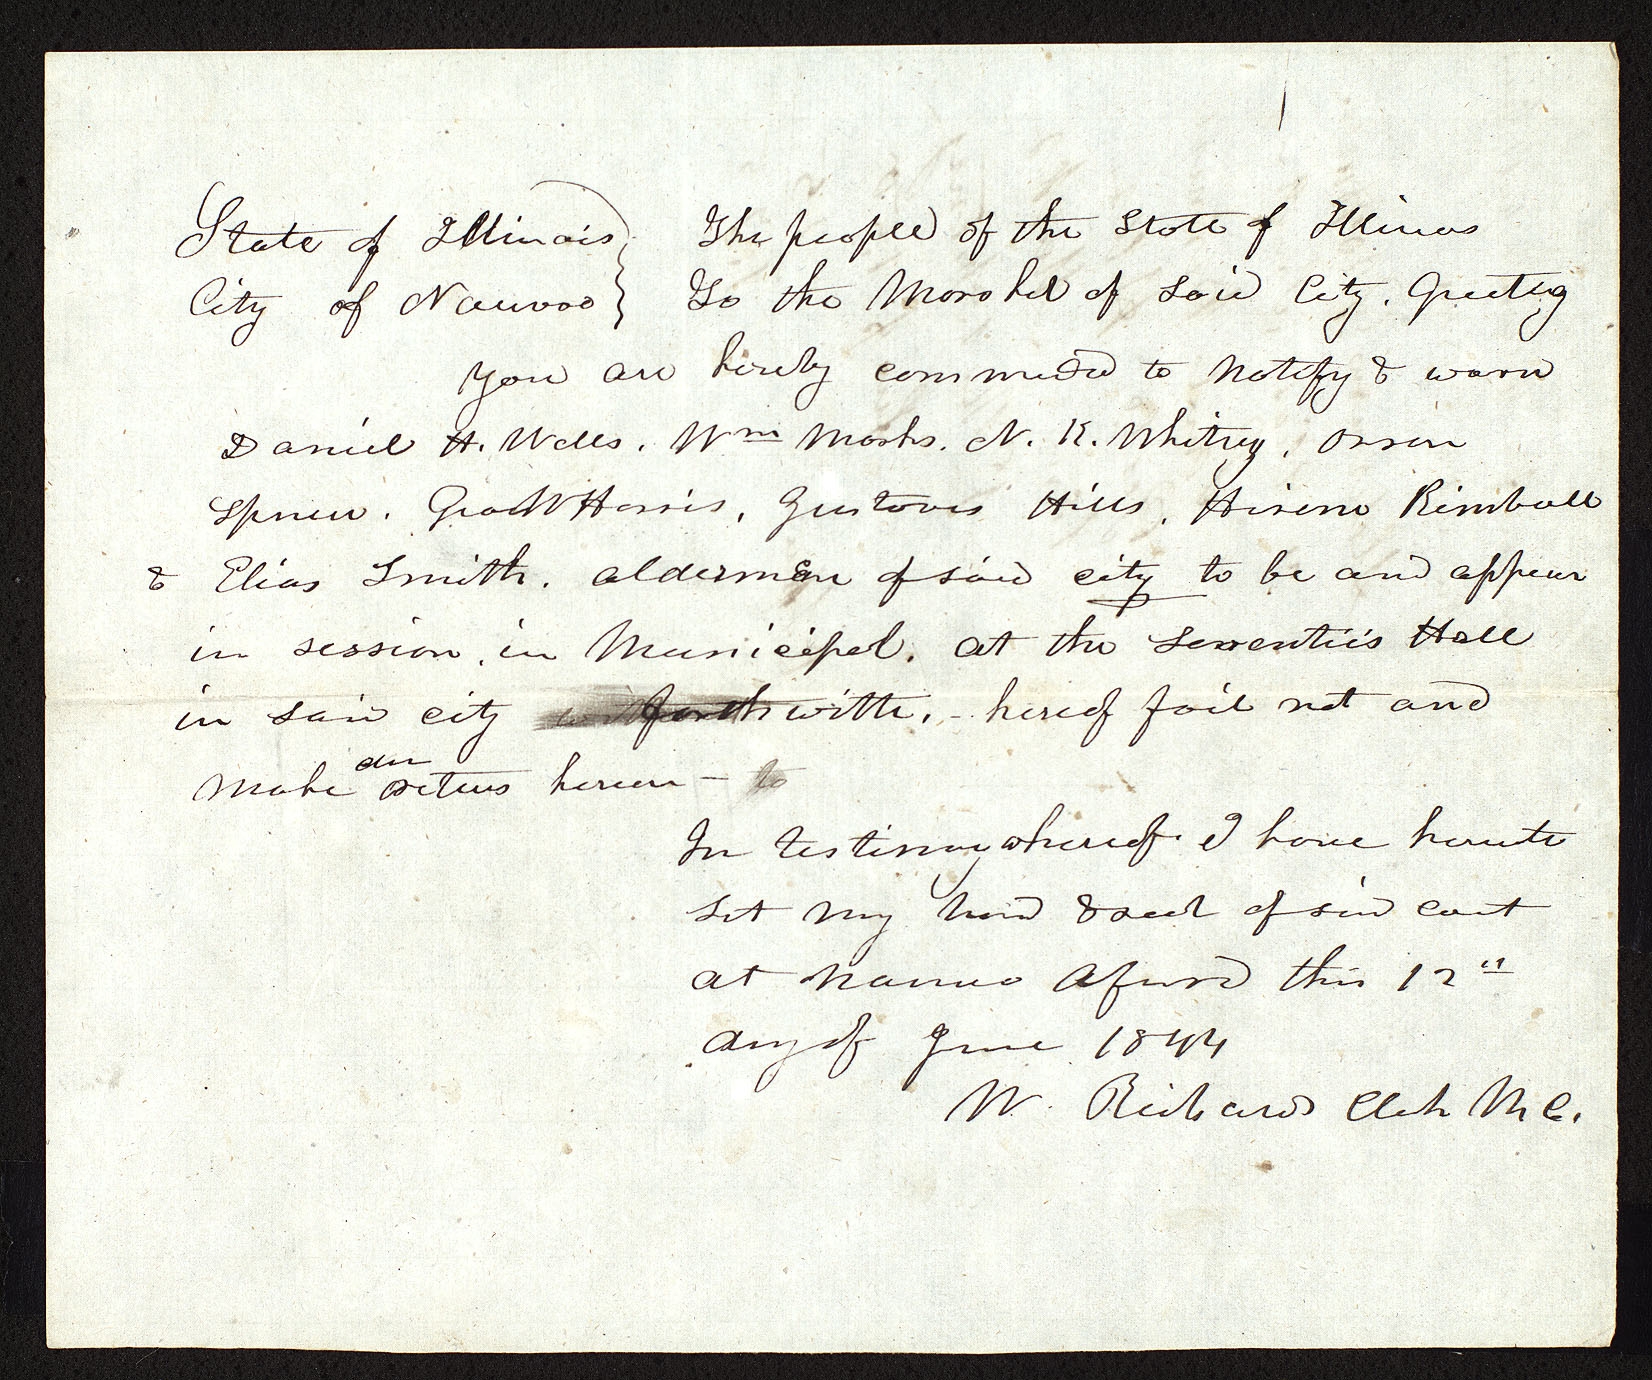 State of Illinois } The people of the State of Illinois
City of Nauvoo } To the Marshal of said City. Greeting
You are hereby commanded to notify & warn
Daniel H. Wells. Wm Marks. N. K. Whitney, Orson
Spencer. Geo W Harris, Gustavus Hills, Hiram Kimball
& Elias Smith. aldermen of said city to be and appear
in session, in Municipal. at the Seventies Hall
in said city forthwith. - hereof fail not and
make due return hereon - to
In testimony whereof I have hereunto
set my hand & seal of said court
at Nauvoo aforesaid this 12th
day of June 1844
W. Richards Clerk M C.